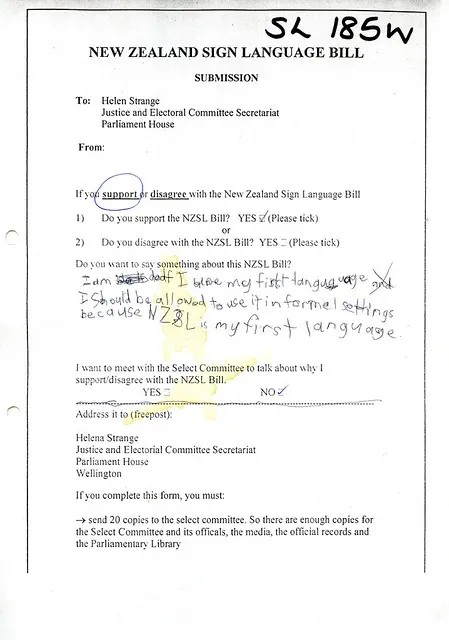 SL 185W
NEW ZEALAND SIGN LANGUAGE BILL
SUBMISSION
To: Helen Strange
Justice and Electoral Committee Secretariat
Parliament House
From:
If you support or disagree with the New Zealand Sign Language Bill
1) Do you support the NZSL Bill? YES ☑ (Please tick)
or
2) Do you disagree with the NZSL Bill? YES ☐ (Please tick)
Do you want to say something about this NZSL Bill?
I am deaf I my first language
I should be allowed to use it in formel settings
because NZSL is my first language.
I want to meet with the Select Committee to talk about why I
support/disagree with the NZSL Bill.
YES ☐ NO ☑
Address it to (freepost):
Helena Strange
Justice and Electorial Committee Secretariat
Parliament House
Wellington
If you complete this form, you must:
→ send 20 copies to the select committee. So there are enough copies for
the Select Committee and its officals, the media, the official records and
the Parliamentary Library